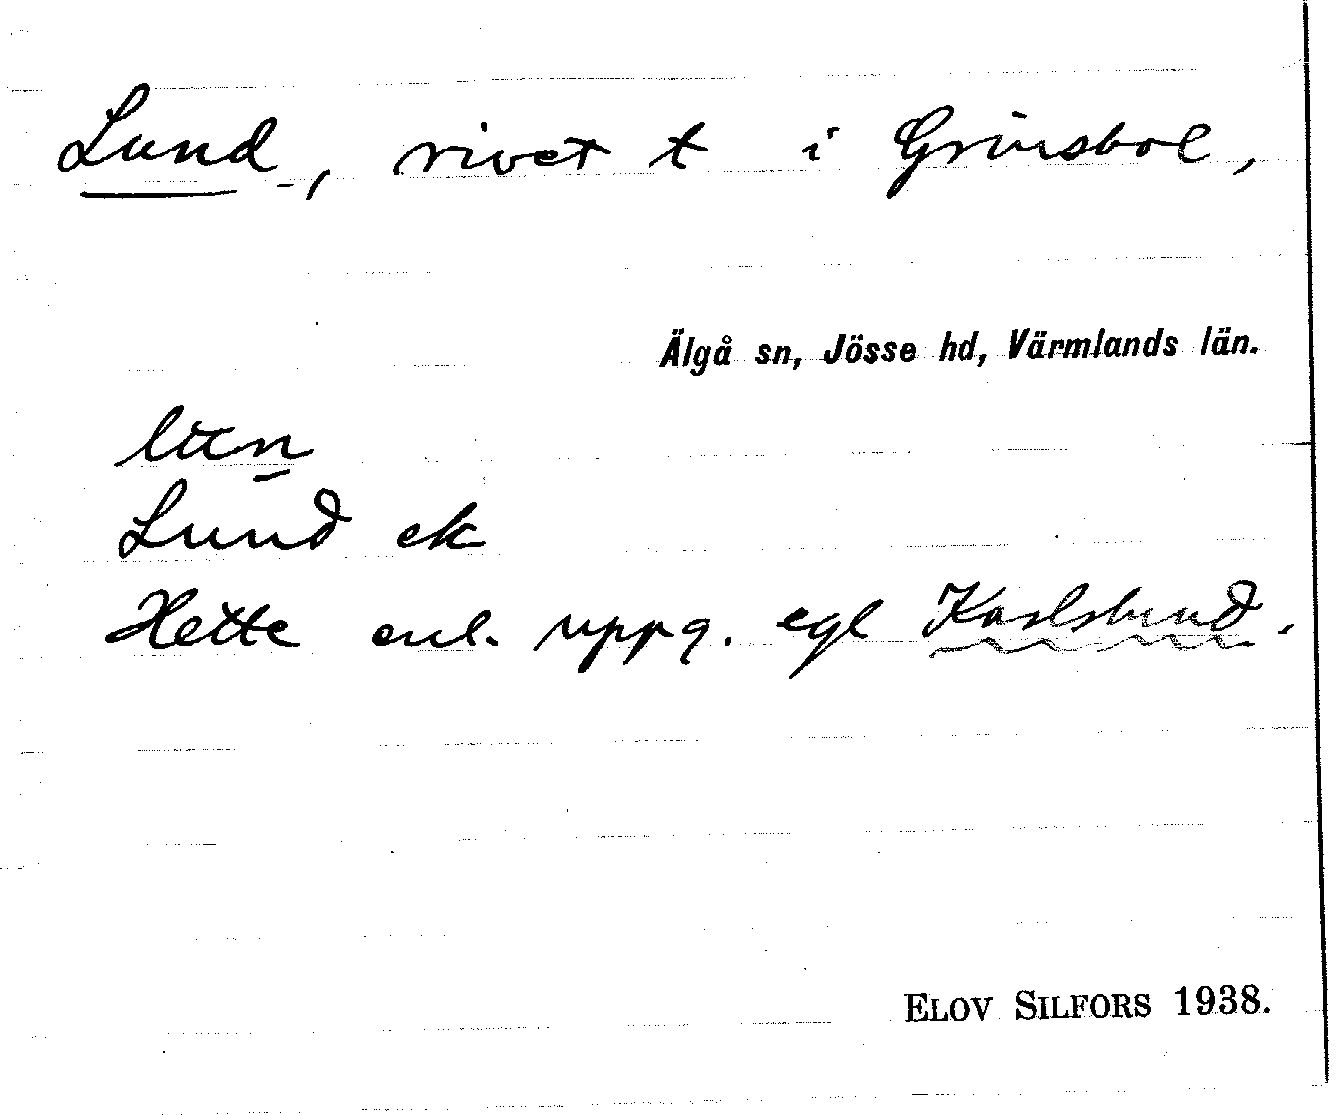 Lund, rivet t i Grinsbol,
Älgå sn, Jösse hd, Värmlands län.
Lund ek
Hette enl. uppg. egl Karlslund.
ELOV SILFORS 1938.